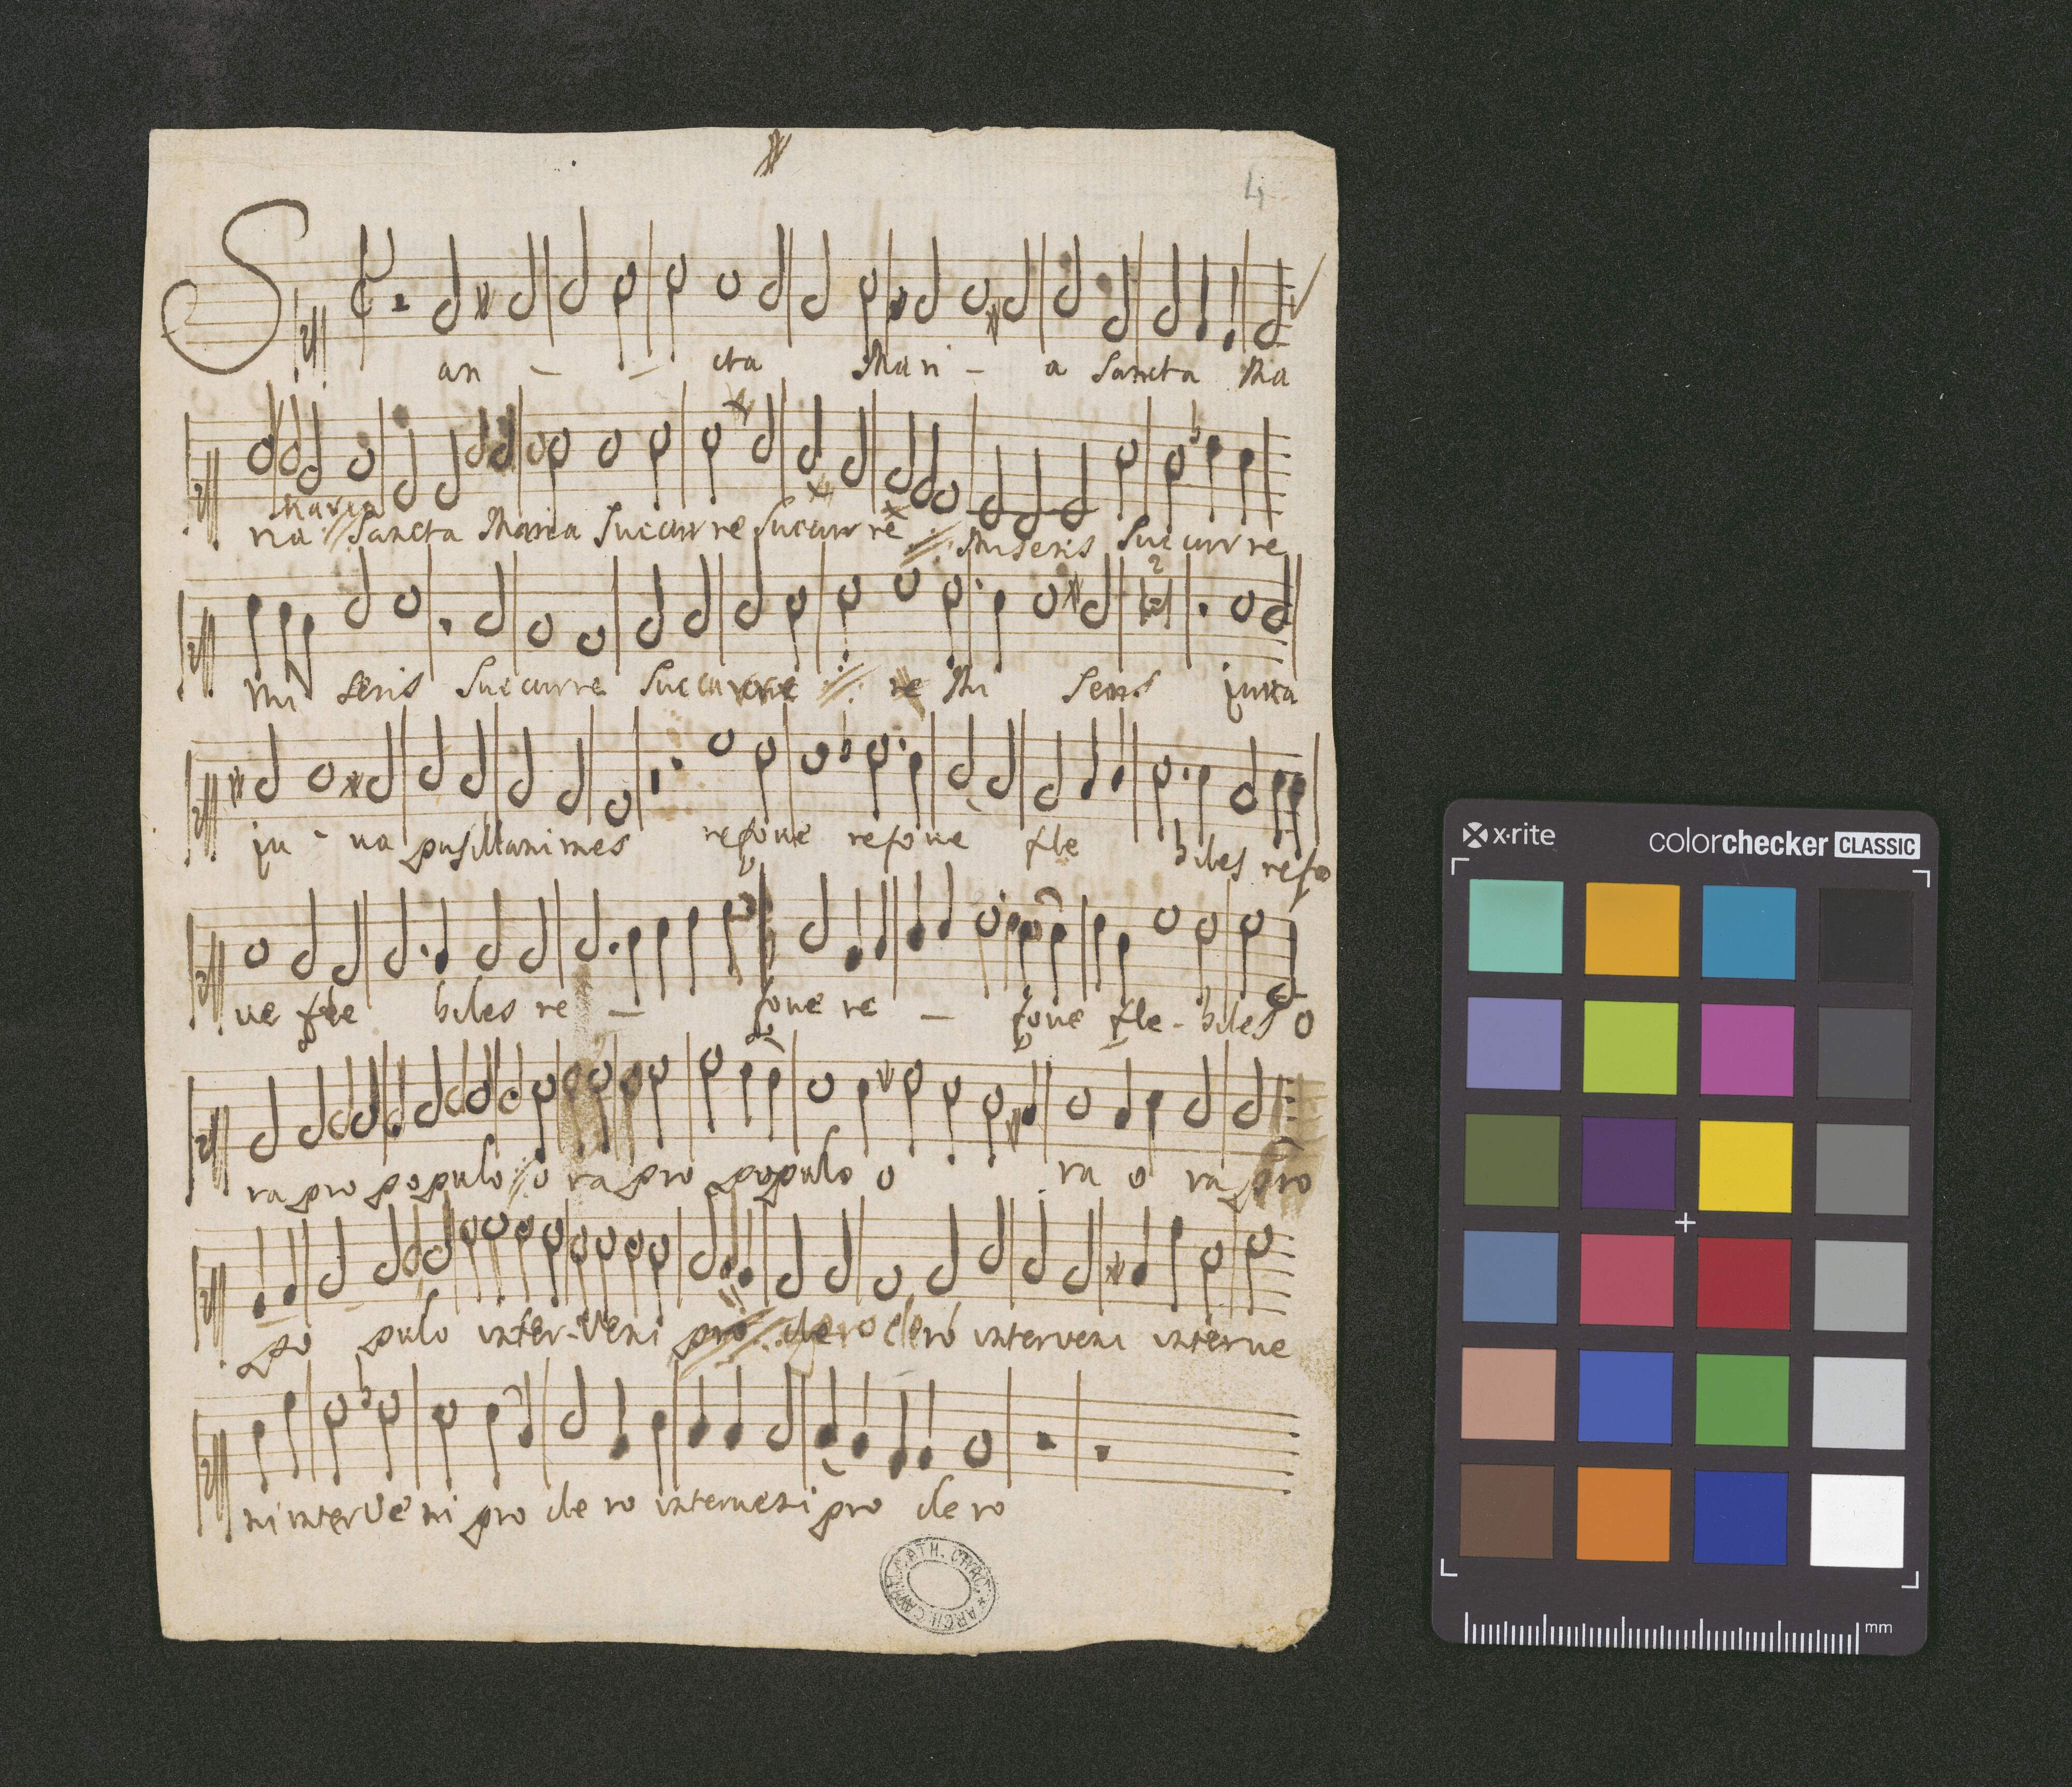 4
San - - cta Mari - a Sancta Ma
maria
ria Sancta Maria Sucurre Sucurre Miseris Sucurre
2
Mi seris Sucurre Succurre re Mi seris juva
ju - va pusillanimes refove refove fle biles refo
ve fle biles re - fove re - fove fle - biles o
ra pro populo o ra pro populo o ra o ra pro
po pulo inter-veni pro clero clero interveni interve
ni interveni pro cle ro interveni pro cle ro
x·rite
colorchecker CLASSIC
mm